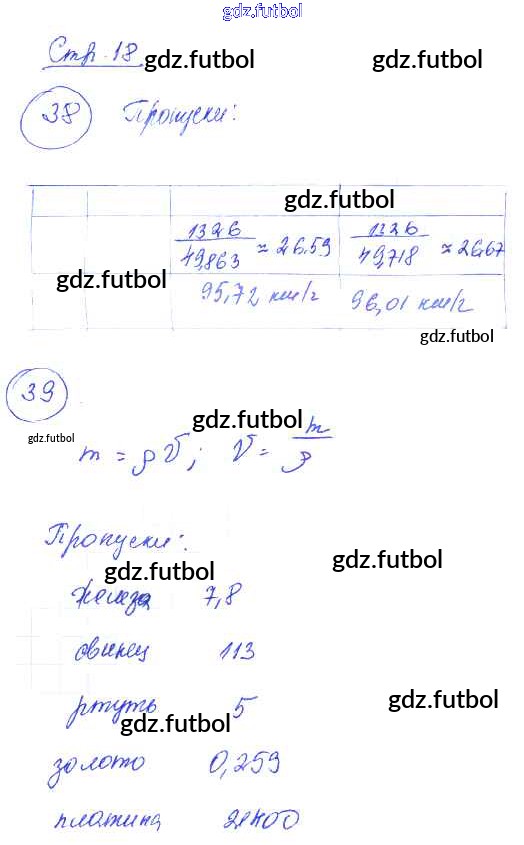 gdz.futbol
Стр. 18 gdz.futbol gdz.futbol
38 Пропуски:
gdz.futbol
1326/49,863 ≈ 26.59 1326/49,718 ≈ 26,67
gdz.futbol
95,72 км/г 96,01 км/г
gdz.futbol
39
gdz.futbol
gdz.futbol
m = ρV; V = m/ρ
Пропуски:
gdz.futbol
gdz.futbol
железа 7,8
свинец 113
gdz.futbol
ртуть 5
gdz.futbol
золото 0,259
платина 21400